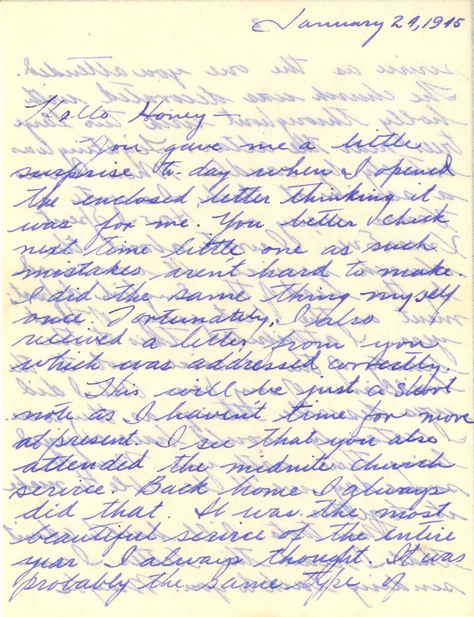 January 24, 1945
Hello Honey —
You gave me a little
surprise to-day when I opened
the enclosed letter thinking it
was for me. You better check
next time little one as such
mistakes arent hard to make.
I did the same thing myself
once. Fortunately, I also
received a letter from you
which was addressed correctly.
This will be just a short
note as I haven't time for more
at present. I see that you also
attended the midnite church
service. Back home I always
did that. It was the most
beautiful service of the entire
year I always thought. It was
probably the same type of